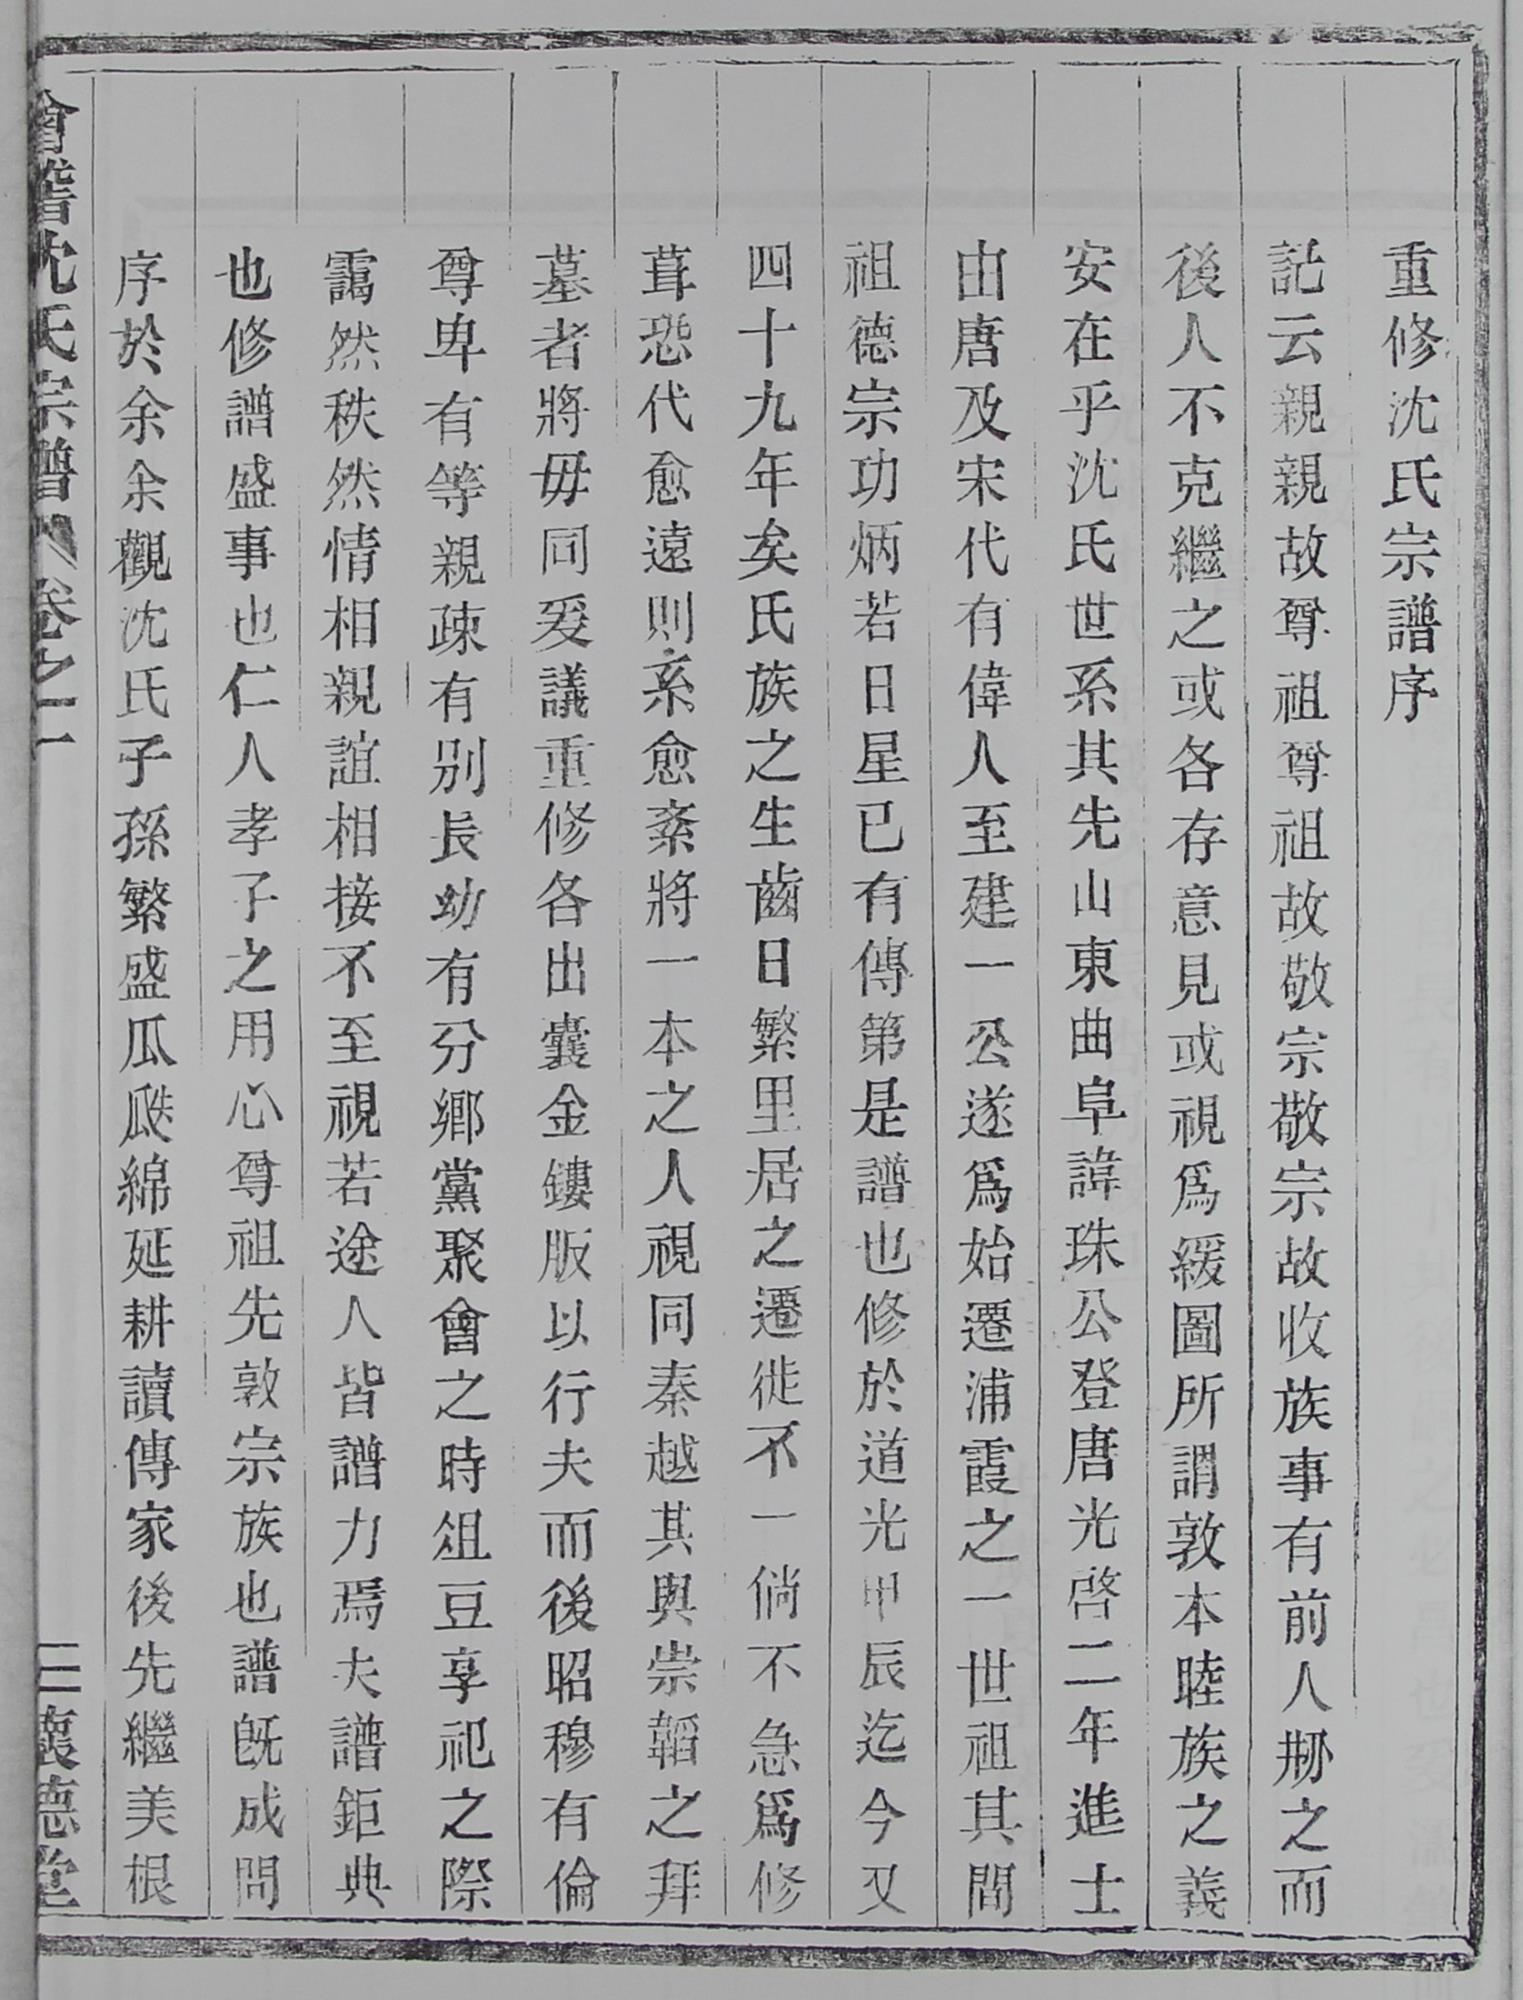 重修沈氏宗譜序
記云親親故尊祖尊祖故敬宗敬宗故收族事有前人刱之而
後人不克繼之或各存意見或視爲緩圖所謂敦本睦族之義
安在乎沈氏世系其先山東曲阜諱珠公登唐光啓二年進士
由唐及宋代有偉人至建一公遂爲始遷浦霞之一世祖其間
祖德宗功炳若日星已有傳第是譜也修於道光甲辰迄今又
四十九年矣氏族之生齒日繁里居之遷徙不一倘不急爲修
葺恐代愈遠則系愈紊將一本之人視同秦越其與崇韜之拜
墓者將毋同爰議重修各出囊金鏤版以行夫而後昭穆有倫
尊卑有等親疎有别長幼有分鄉黨聚會之時俎豆享祀之際
靄然秩然情相親誼相接不至視若途人皆譜力焉夫譜鉅典
也修譜盛事也仁人孝子之用心尊祖先敦宗族也譜旣成問
序於余余觀沈氏子孫繁盛瓜瓞綿延耕讀傳家後先繼美根
會稽沈氏宗譜 卷之一 三 懷德堂